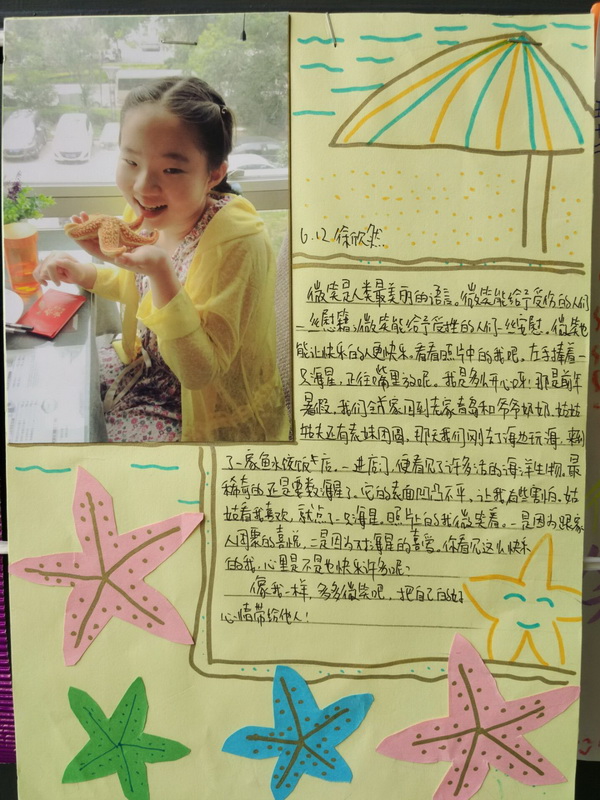 6.12 徐欣然
微笑是人类最美丽的语言。微笑能给予受伤的人们
一丝慰藉；微笑能给予受挫的人们一丝安慰。微笑也
能让快乐的人更快乐。看看照片中的我吧。左手捧着一
只海星，正往嘴里放呢。我是多么开心呀！那是前年
暑假，我们全家回到老家青岛和爷爷奶奶、姑姑
姑夫还有表妹团圆。那天我们刚在了海边玩海，来到
了一家鱼水饺饭店。一进店门，便看见了许多活的海洋生物。最
稀奇的还是要数海星了，它的表面凹凸不平，让我有些害怕。姑
姑看我喜欢，就点了一只海星。照片上的我微笑着。一是因为跟家
人团聚的喜悦，二是因为对海星的喜爱。你看见这么快乐
的我，心里是不是也快乐许多呢？
像我一样，多多微笑吧，把自己的好
心情带给他人！